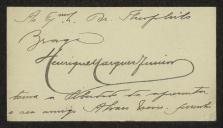 Ao Exmo. Sr. Theophilo
Braga
Henrique Marques Junior
toma a liberdade de apresentar
o seu amigo Alvaro